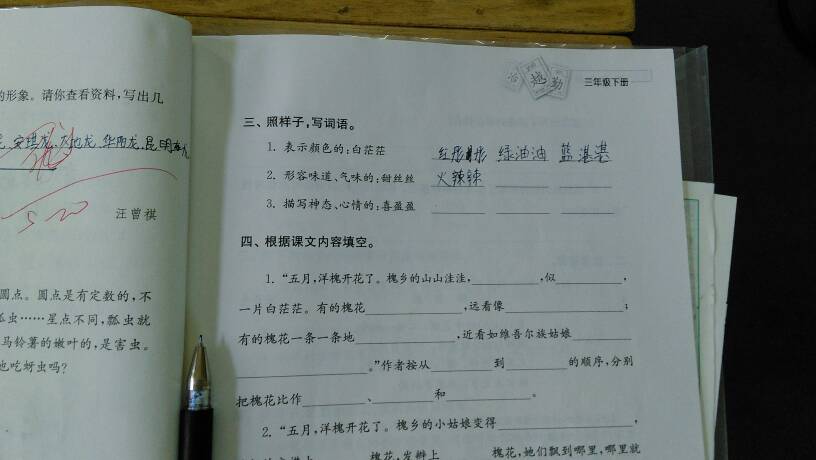 的形象。请你查看资料,写出几
安琪龙、大地龙、华阳龙、昆明龙
520
汪曾祺
圆点。圆点是有定数的,不
瓢虫……星点不同,瓢虫就
马铃薯的嫩叶的,是害虫。
也吃蚜虫吗?
治 越 勤
三年级下册
三、照样子,写词语。
1. 表示颜色的:白茫茫 红彤彤 绿油油 蓝湛湛
2. 形容味道、气味的:甜丝丝 火辣辣
3. 描写神态、心情的:喜盈盈
四、根据课文内容填空。
1. “五月,洋槐开花了。槐乡的山山洼洼,,似,
一片白茫茫。有的槐花,远看像;
有的槐花一条一条地,近看如维吾尔族姑娘
。”作者按从到的顺序,分别
把槐花比作、和。
2. “五月,洋槐开花了。槐乡的小姑娘变得,
槐花,发辫上槐花,她们飘到哪里,哪里就